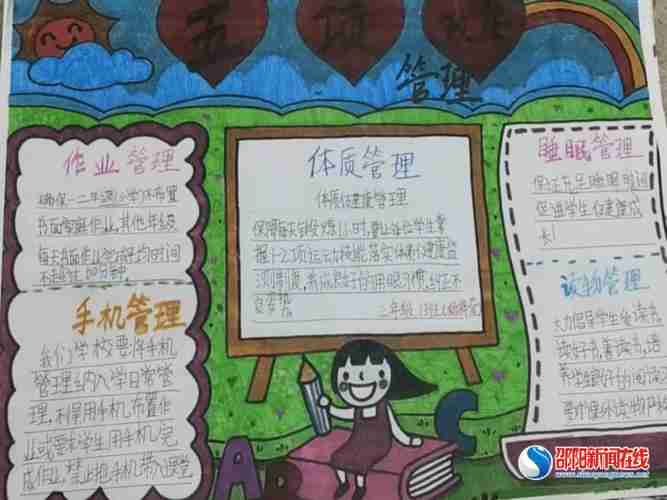 五项
管理
作业管理
确保一二年级(小学)不布置
书面家庭作业,其他年级
每天书面作业完成平均时间
不超过60分钟。
手机管理
我们学校要将手机
管理纳入学日常管
理,利用手机布置作
业或要求学生用手机完
成作业,禁止把手机带入课堂
体质管理
体质健康管理
保障每天校内锻炼1小时,
掌握1-2项运动技能落实体质健康监
测制度,养成良好的用眼习惯,纠正不
良姿势。
二年级
睡眠管理
保证充足睡眠时间
促进学生健康成
长!
读物管理
大力倡导学生爱读书
读好书,善读书,培
养学生良好的阅读习
ABC
邵阳新闻在线